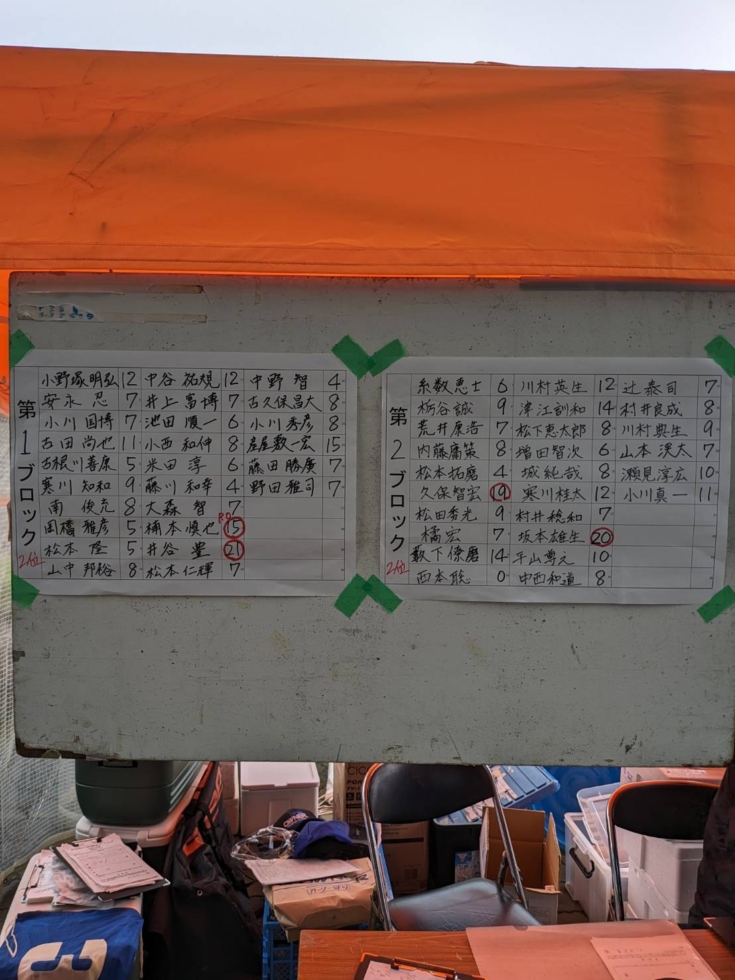 第1ブロック
2位
小野塚明弘 12 中谷祐規 12 中野智 4
安永忍 7 井上富博 7 古久保昌大 8
小川国博 7 池田順一 6 小川秀彦 8
古田尚也 11 小西和伸 8 一宏 15
古根川善康 5 米田淳 6 藤田勝廣 7
寒川知和 9 藤川和幸 4 野田雅司 7
南俊克 8 大森智 7
岡橋雅彦 5 楠本慎也 15
松本隆 5 井谷豊 21
山中邦裕 8 松本仁輝 7
第2ブロック
2位
糸数恵士 6 川村英生 12 辻泰司 7
栃谷誠 9 津江訓和 14 村井良成 8
荒井原浩 7 松下恵太郎 8 川村典生 9
内藤庸策 8 増田智次 6 山本渓太 7
松本拓磨 4 城純哉 8 瀬見淳広 10
久保智宏 19 寒川桂太 12 小川真一 11
松田秀光 9 村井稔和 7
橘宏 7 坂本雄生 20
薮下倖磨 14 平山尊元 10
西本聡 0 中西和道 8